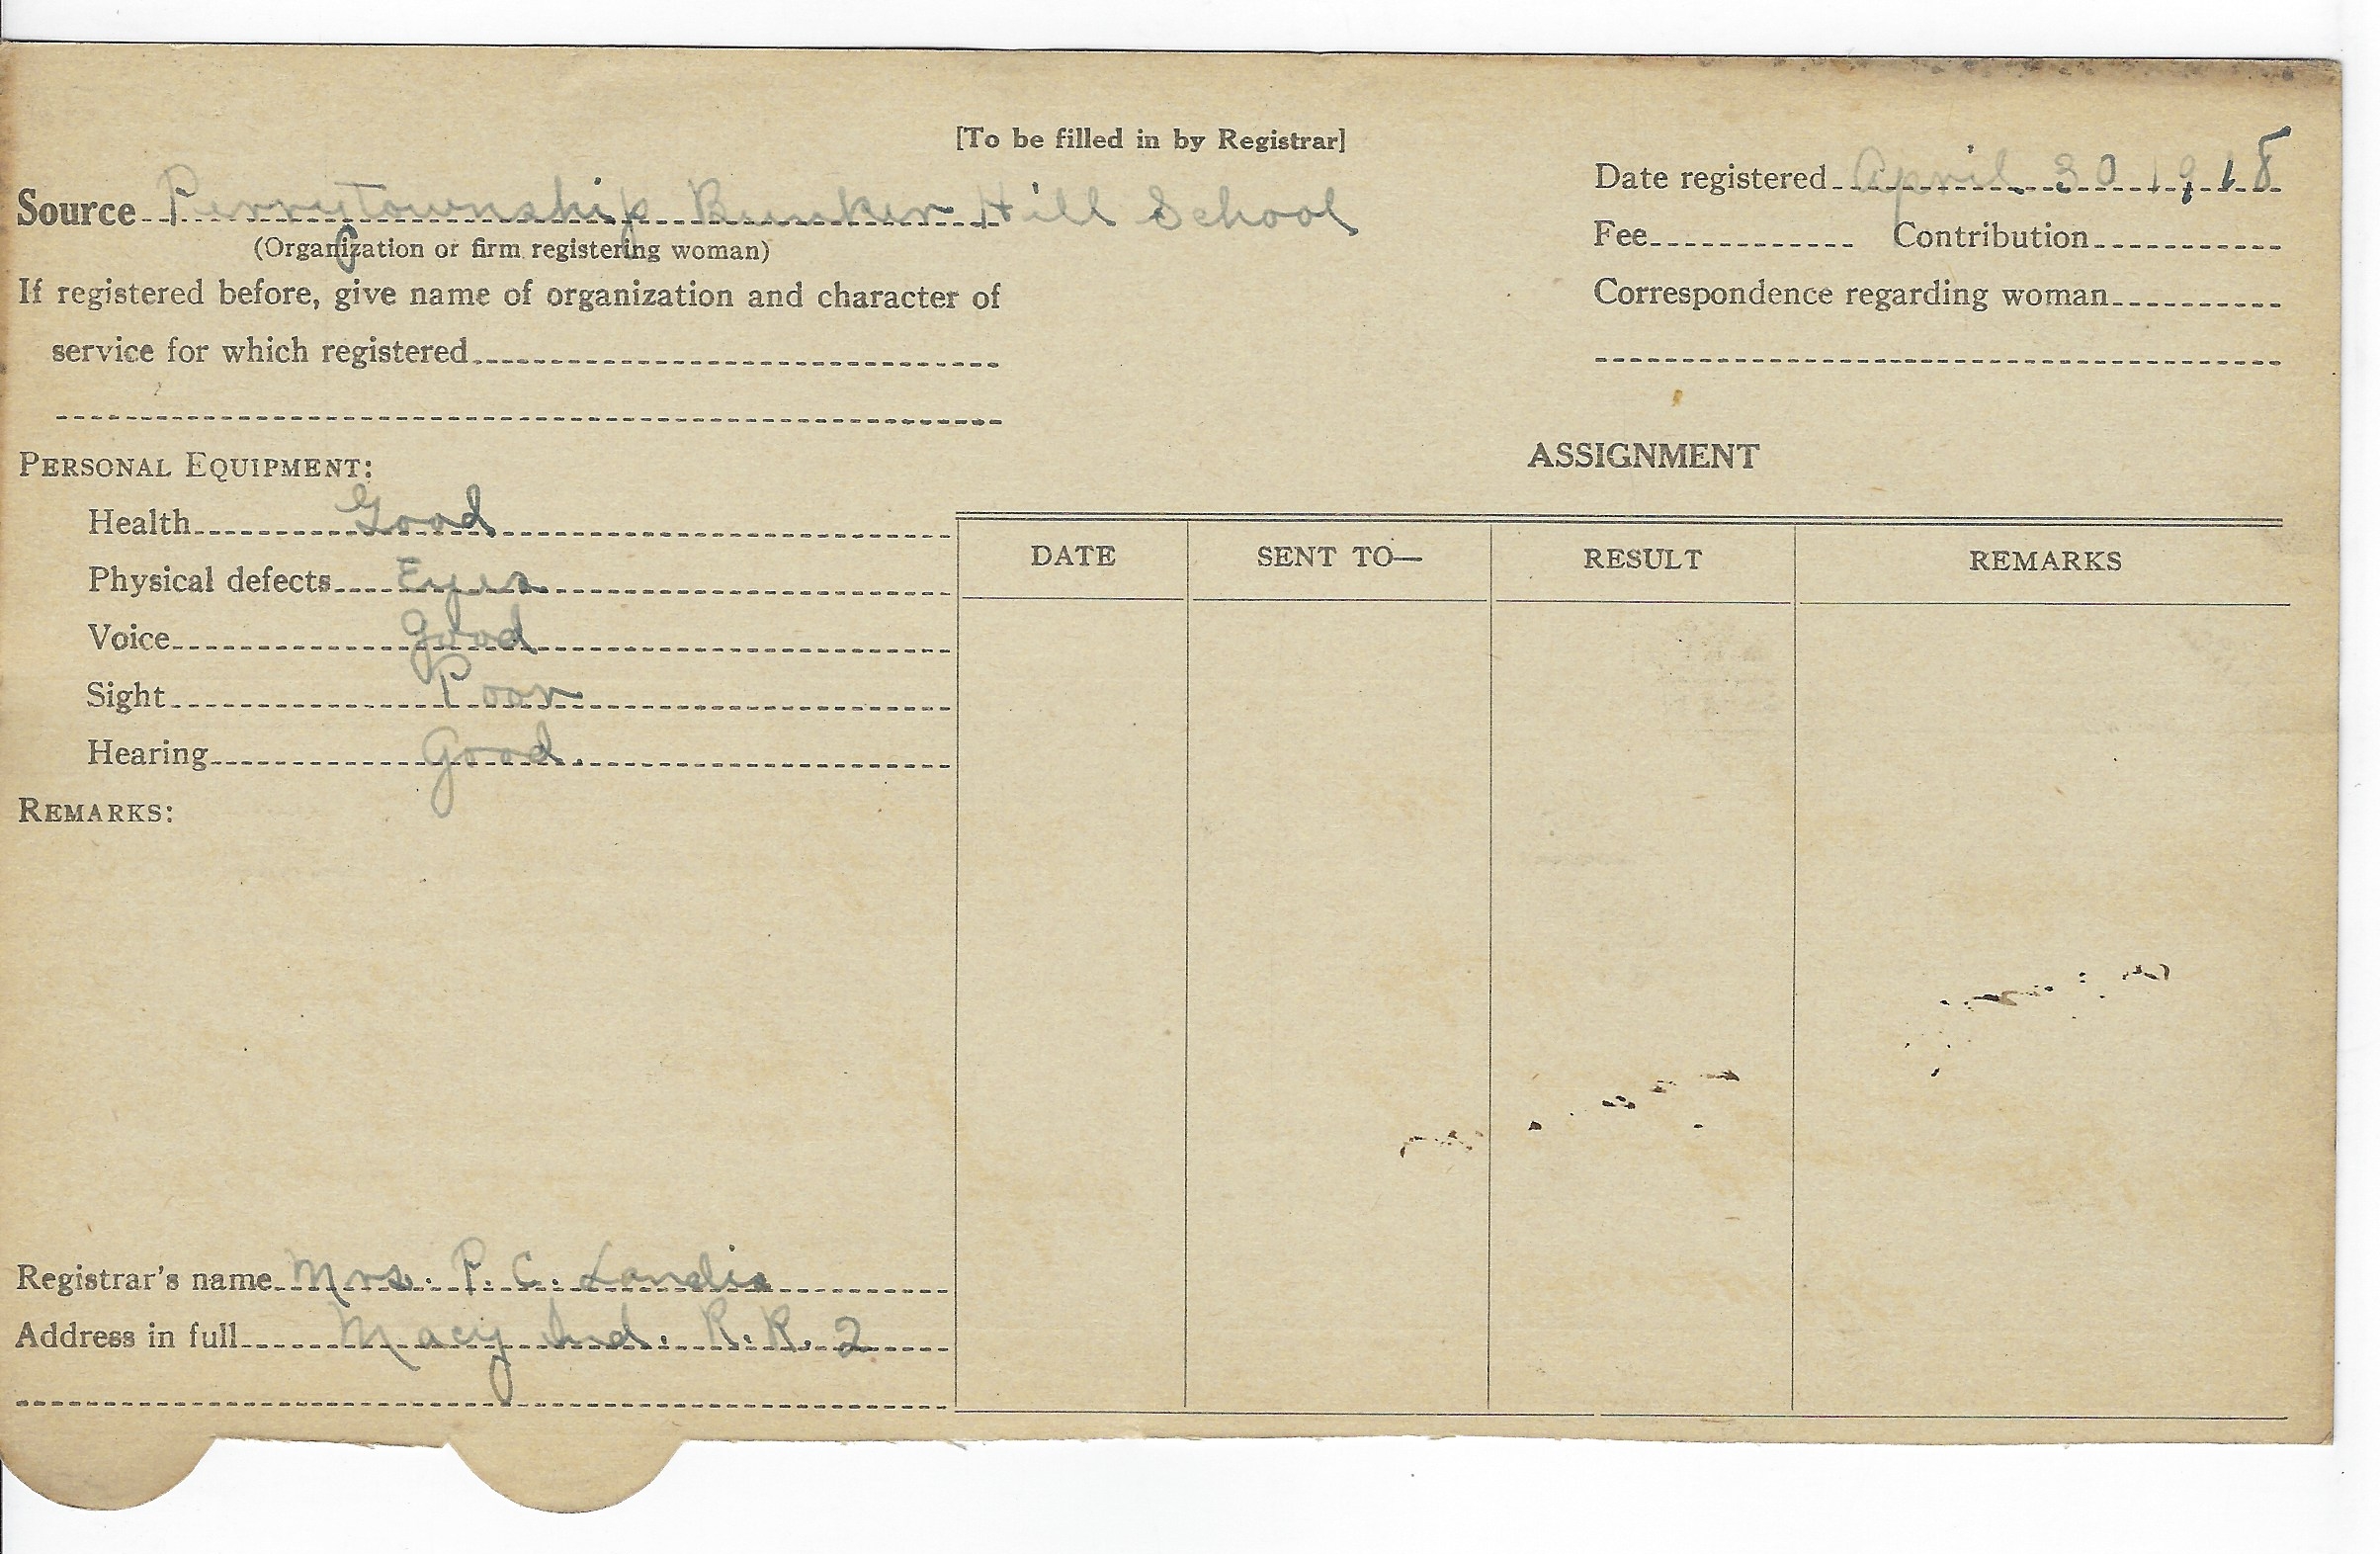 [To be filled in by Registrar]
Source Perry Township Bunker Hill School
(Organization or firm registering woman)
If registered before, give name of organization and character of
service for which registered
Date registered April 30 1918
Fee Contribution
Correspondence regarding woman
PERSONAL EQUIPMENT:
Health Good
Physical defects Eyes
Voice good
Sight Poor
Hearing Good.
REMARKS:
ASSIGNMENT
DATE SENT TO— RESULT REMARKS
Registrar's name Mrs. P. C. Landis
Address in full Macy Ind. R. R. 2